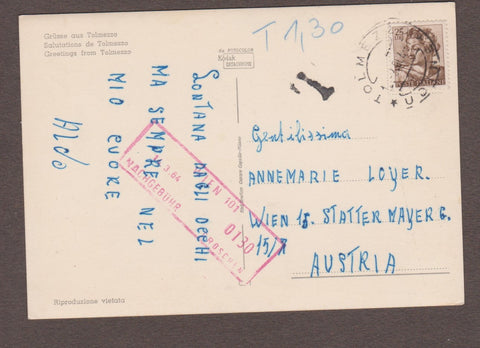 Grüsse aus Tolmezzo
Salutations de Tolmezzo
Greetings from Tolmezzo
Kodak
EKTACHROME
T 1,30
TOLMEZZO
T
LONTANA DAGLI OCCHI
MA SEMPRE NEL
MIO CUORE
Aldo
WIEN 101
3.64
0130
NACHGEBÜHR
GROSCHEN
Gentilissima
ANNEMARIE LOYER.
WIEN 15. STATTERMAYER G.
15/7
AUSTRIA
Riproduzione vietata